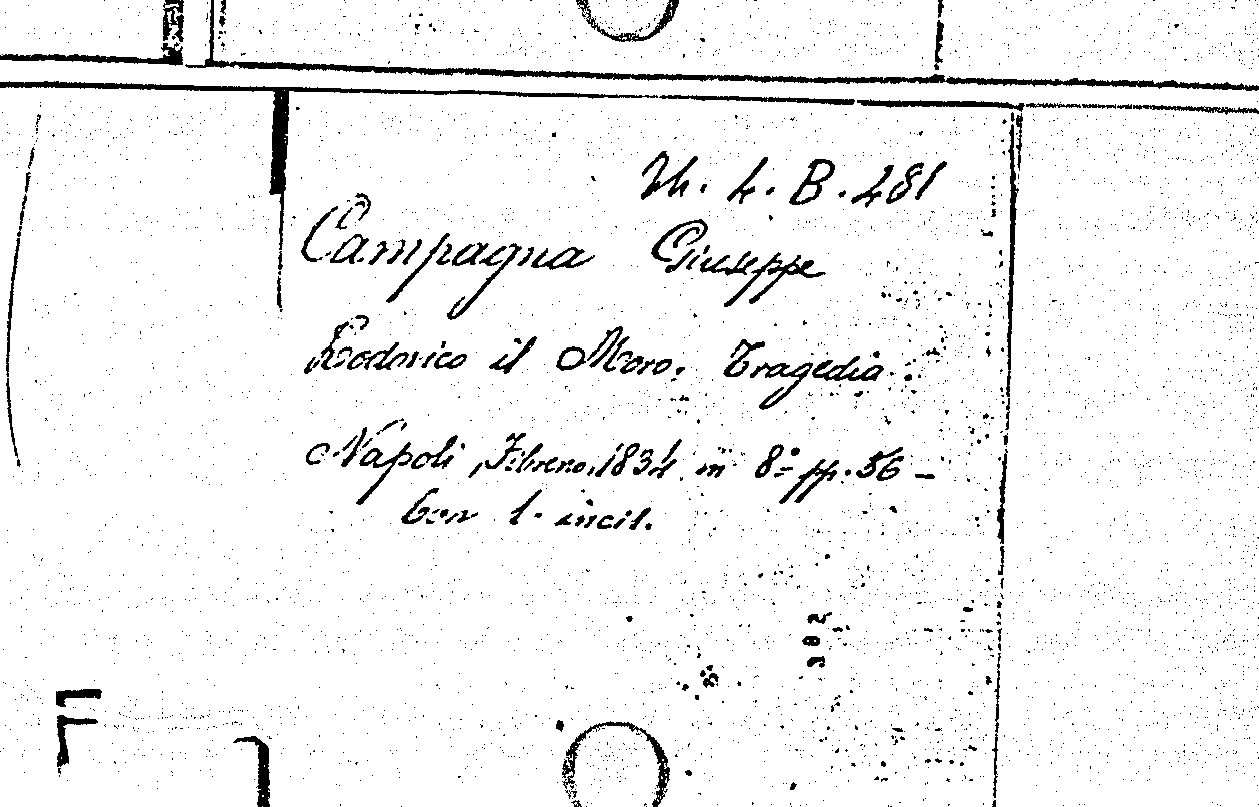 Th. 4. B. 281
Campagna Giuseppe
Lodovico il Moro. Tragedia.
Napoli, Fibreno, 1834 in 8º pp. 56 -
Con 1. incis.
302
F